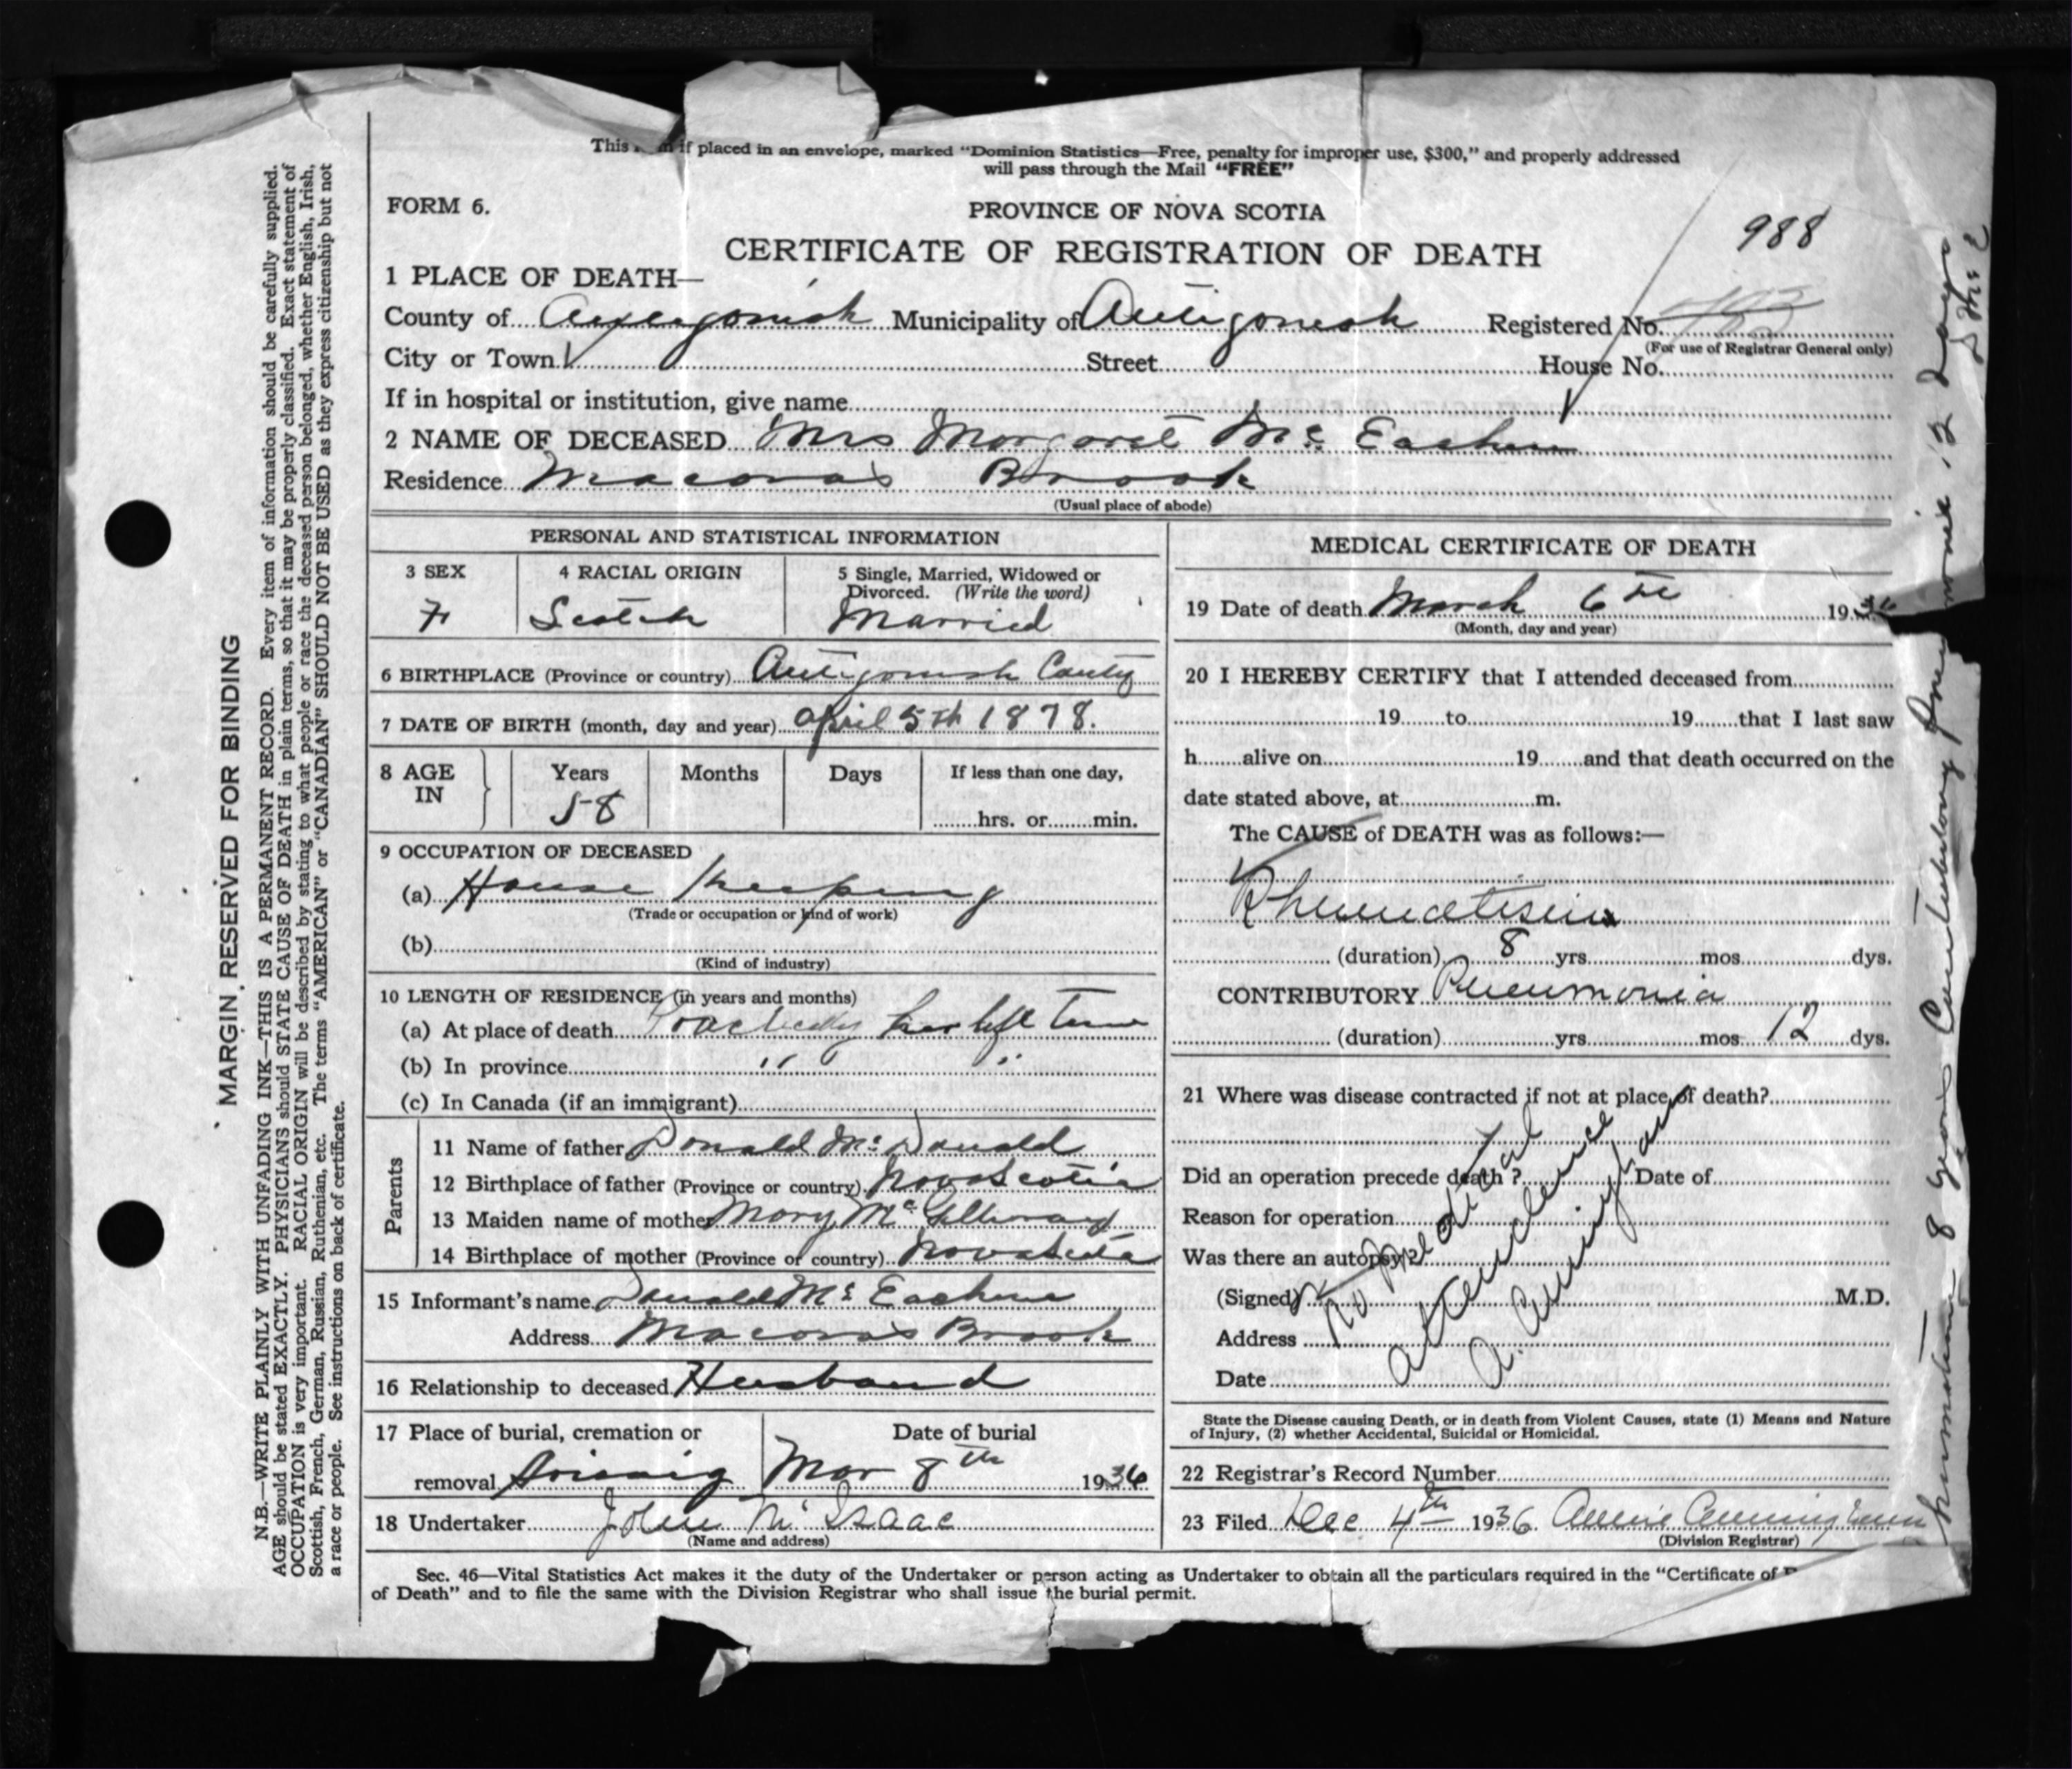 This if placed in an envelope, marked “Dominion Statistics—Free, penalty for improper use, $300,” and properly addressed
will pass through the Mail “FREE”
FORM 6.
PROVINCE OF NOVA SCOTIA
988
CERTIFICATE OF REGISTRATION OF DEATH
1 PLACE OF DEATH—
County of Antigonish Municipality of Antigonish Registered No.
(For use of Registrar General only)
City or Town Street House No.
If in hospital or institution, give name
2 NAME OF DECEASED Mrs Margaret Mc Eachern
Residence Brook
(Usual place of abode)
PERSONAL AND STATISTICAL INFORMATION
3 SEX 4 RACIAL ORIGIN 5 Single, Married, Widowed or
Divorced. (Write the word)
F Scotch Married
6 BIRTHPLACE (Province or country) Antigonish County
7 DATE OF BIRTH (month, day and year) April 5th 1878.
8 AGE IN Years Months Days If less than one day,
58 hrs. or min.
9 OCCUPATION OF DECEASED
(a) House Keeping
(Trade or occupation or kind of work)
(b)
(Kind of industry)
10 LENGTH OF RESIDENCE (in years and months)
(a) At place of death Practically her life time
(b) In province " "
(c) In Canada (if an immigrant)
Parents
11 Name of father Donald Mc Donald
12 Birthplace of father (Province or country) Nova Scotia
13 Maiden name of mother Mary Mc Gillivray
14 Birthplace of mother (Province or country) Nova Scotia
15 Informant’s name Donald Mc Eachern
Address Brook
16 Relationship to deceased Husband
17 Place of burial, cremation or Date of burial
removal Arisaig Mar 8th 1936
18 Undertaker John Mc Isaac
(Name and address)
MEDICAL CERTIFICATE OF DEATH
19 Date of death March 6th 1936
(Month, day and year)
20 I HEREBY CERTIFY that I attended deceased from
19 to 19 that I last saw
h alive on 19 and that death occurred on the
date stated above, at m.
The CAUSE of DEATH was as follows:—
Rheumatism
(duration) 8 yrs. mos. dys.
CONTRIBUTORY Pneumonia
(duration) yrs. mos. 12 dys.
21 Where was disease contracted if not at place of death?
Did an operation precede death? Date of
Reason for operation
Was there an autopsy?
(Signed) M.D.
Address
Date
No Medical
attendence
A. Cunningham
State the Disease causing Death, or in death from Violent Causes, state (1) Means and Nature
of Injury, (2) whether Accidental, Suicidal or Homicidal.
22 Registrar’s Record Number
23 Filed Dec 4th 1936. Annie Cunningham
(Division Registrar)
Sec. 46—Vital Statistics Act makes it the duty of the Undertaker or person acting as Undertaker to obtain all the particulars required in the “Certificate of
of Death” and to file the same with the Division Registrar who shall issue the burial permit.
MARGIN RESERVED FOR BINDING
N.B.—WRITE PLAINLY WITH UNFADING INK—THIS IS A PERMANENT RECORD. Every item of information should be carefully supplied.
AGE should be stated EXACTLY. PHYSICIANS should STATE CAUSE OF DEATH in plain terms, so that it may be properly classified. Exact statement of
OCCUPATION is very important. RACIAL ORIGIN will be described by stating to what people or race the deceased person belonged, whether English, Irish,
Scottish, French, German, Russian, Ruthenian, etc. The terms “AMERICAN” or “CANADIAN” SHOULD NOT BE USED as they express citizenship but not
a race or people. See instructions on back of certificate.
8 years Contributory Pneumonia 12 Days